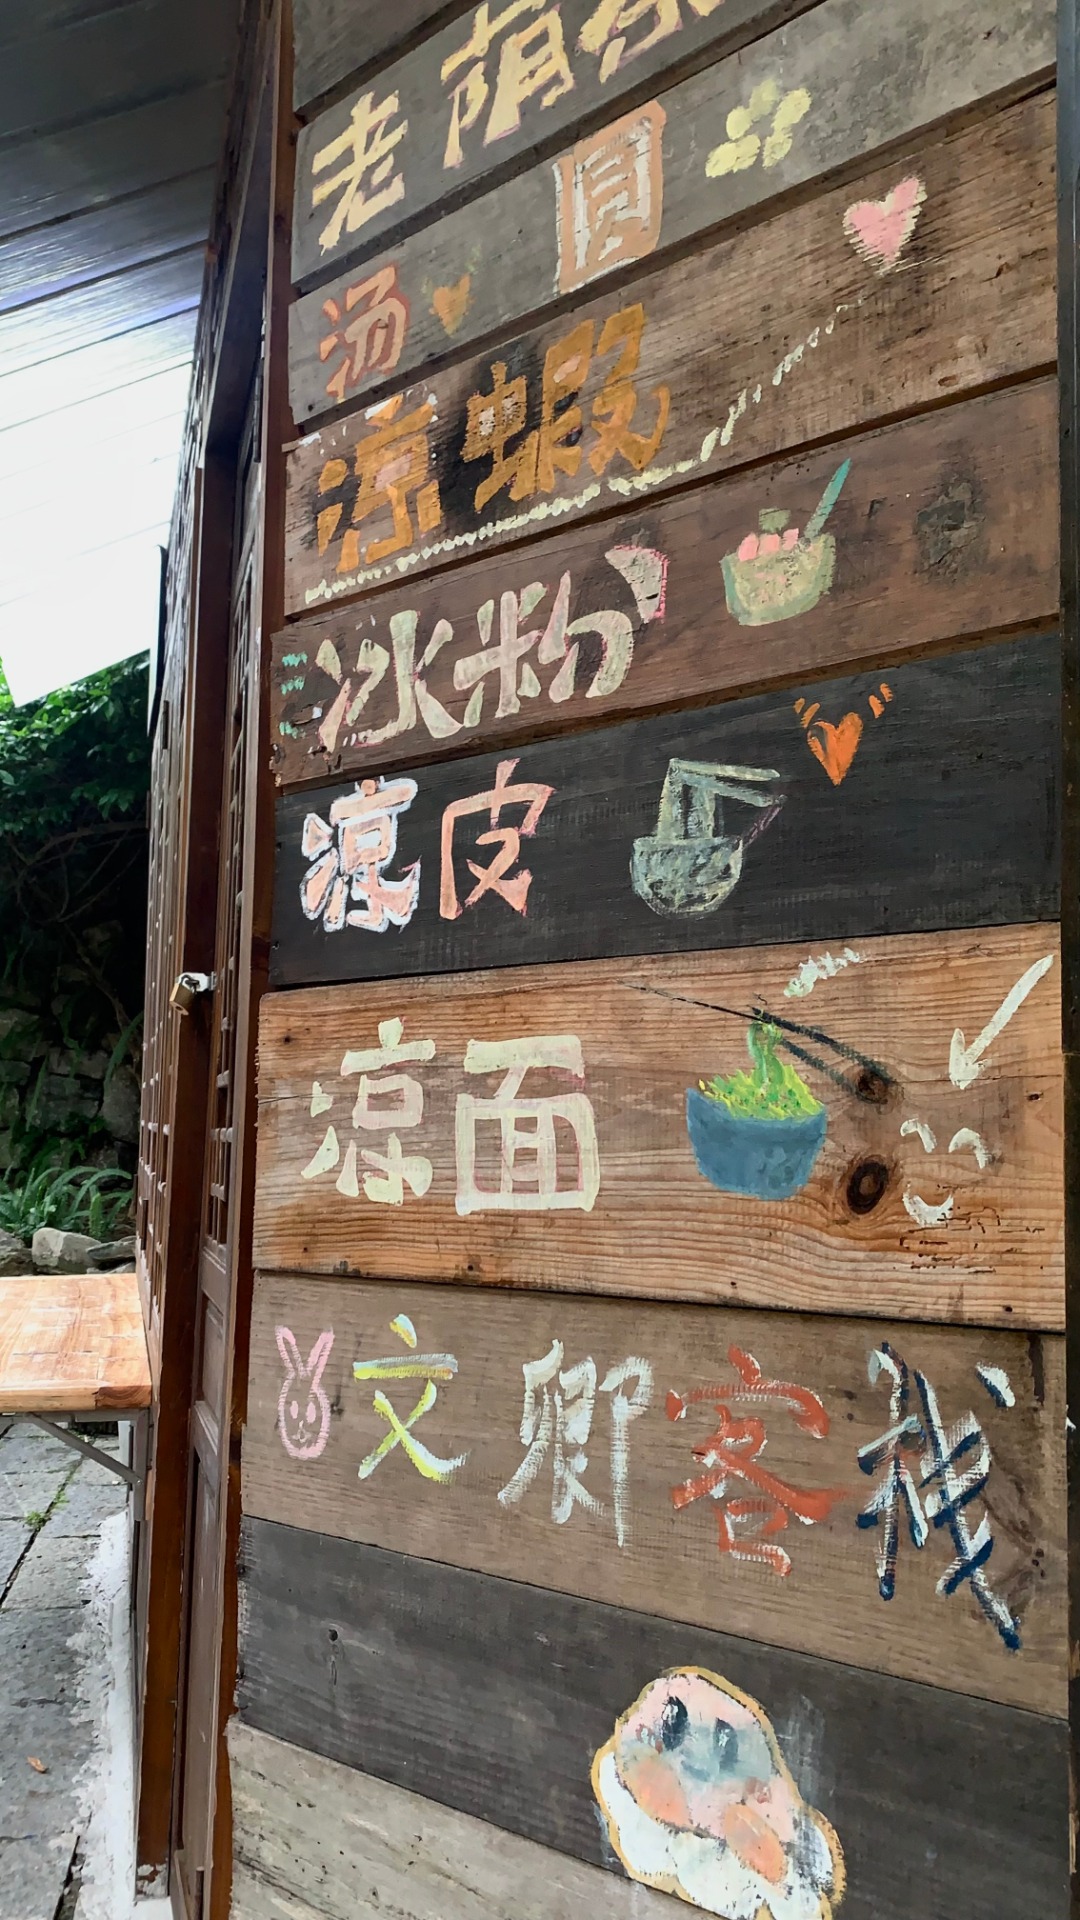 老荫茶
汤圆
凉蝦
冰粉
凉皮
凉面
文卿客栈